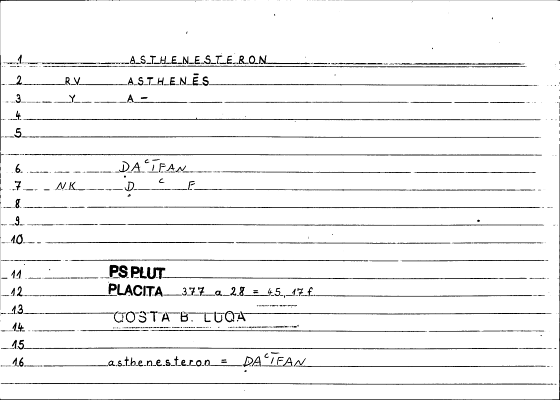 1 ASTHENESTERON
2 RV ASTHENĒS
3 Y A –
4
5
6 ḌAᶜĪFAN
7 NK Ḍ ᶜ F
8
9
10
11 PS PLUT
12 PLACITA 377 a 28 = 45, 17 f
13 QOSTA B. LUQA
14
15
16 asthenesteron = ḌAᶜĪFAN